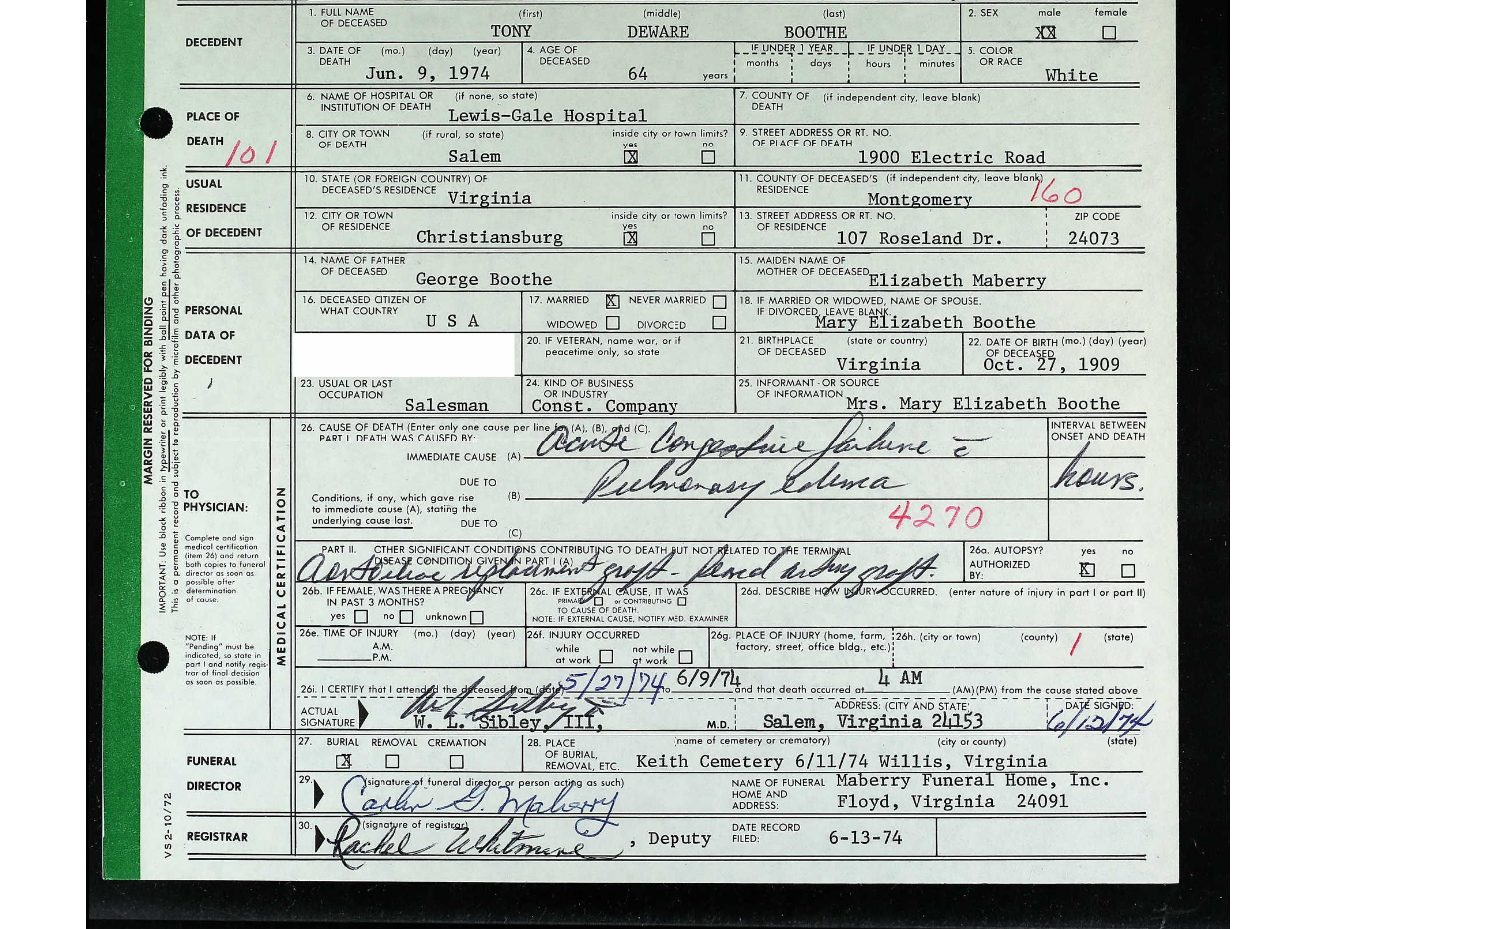 DECEDENT
1. FULL NAME OF DECEASED (first) (middle) (last)
TONY DEWARE BOOTHE
2. SEX male female
XX
3. DATE OF DEATH (mo.) (day) (year)
Jun. 9, 1974
4. AGE OF DECEASED
64 years
IF UNDER 1 YEAR IF UNDER 1 DAY
months days hours minutes
5. COLOR OR RACE
White
PLACE OF DEATH
101
6. NAME OF HOSPITAL OR INSTITUTION OF DEATH (if none, so state)
Lewis-Gale Hospital
7. COUNTY OF DEATH (if independent city, leave blank)
8. CITY OR TOWN OF DEATH (if rural, so state)
Salem
inside city or town limits?
yes no
X
9. STREET ADDRESS OR RT. NO. OF PLACE OF DEATH
1900 Electric Road
USUAL RESIDENCE OF DECEDENT
10. STATE (OR FOREIGN COUNTRY) OF DECEASED'S RESIDENCE
Virginia
11. COUNTY OF DECEASED'S RESIDENCE (if independent city, leave blank)
Montgomery
160
12. CITY OR TOWN OF RESIDENCE
Christiansburg
inside city or town limits?
yes no
X
13. STREET ADDRESS OR RT. NO. OF RESIDENCE
107 Roseland Dr.
ZIP CODE
24073
PERSONAL DATA OF DECEDENT
14. NAME OF FATHER OF DECEASED
George Boothe
15. MAIDEN NAME OF MOTHER OF DECEASED
Elizabeth Maberry
16. DECEASED CITIZEN OF WHAT COUNTRY
U S A
17. MARRIED X NEVER MARRIED
WIDOWED DIVORCED
18. IF MARRIED OR WIDOWED, NAME OF SPOUSE. IF DIVORCED, LEAVE BLANK.
Mary Elizabeth Boothe
20. IF VETERAN, name war, or if peacetime only, so state
21. BIRTHPLACE OF DECEASED (state or country)
Virginia
22. DATE OF BIRTH (mo.) (day) (year) OF DECEASED
Oct. 27, 1909
23. USUAL OR LAST OCCUPATION
Salesman
24. KIND OF BUSINESS OR INDUSTRY
Const. Company
25. INFORMANT - OR SOURCE OF INFORMATION
Mrs. Mary Elizabeth Boothe
MARGIN RESERVED FOR BINDING
IMPORTANT: Use black ribbon in typewriter or print legibly with ball point pen having dark unfading ink.
This is a permanent record and subject to reproduction by microfilm and other photographic process.
TO PHYSICIAN:
Complete and sign medical certification (item 26) and return both copies to funeral director as soon as possible after determination of cause.
NOTE: If "Pending" must be indicated, so state in part I and notify registrar of final decision as soon as possible.
MEDICAL CERTIFICATION
26. CAUSE OF DEATH (Enter only one cause per line for (A), (B), and (C).
PART I. DEATH WAS CAUSED BY:
INTERVAL BETWEEN ONSET AND DEATH
IMMEDIATE CAUSE (A) Acute Congestive failure c̄
DUE TO
(B) Pulmonary edema
hours.
Conditions, if any, which gave rise to immediate cause (A), stating the underlying cause last.
DUE TO
(C)
4270
PART II. OTHER SIGNIFICANT CONDITIONS CONTRIBUTING TO DEATH BUT NOT RELATED TO THE TERMINAL DISEASE CONDITION GIVEN IN PART I (A)
replacement graft - artery graft.
26a. AUTOPSY? yes no
AUTHORIZED BY: X
26b. IF FEMALE, WAS THERE A PREGNANCY IN PAST 3 MONTHS?
yes no unknown
26c. IF EXTERNAL CAUSE, IT WAS
PRIMARY or CONTRIBUTING
TO CAUSE OF DEATH.
NOTE: IF EXTERNAL CAUSE, NOTIFY MED. EXAMINER
26d. DESCRIBE HOW INJURY OCCURRED. (enter nature of injury in part I or part II)
26e. TIME OF INJURY (mo.) (day) (year)
A.M.
P.M.
26f. INJURY OCCURRED
while at work not while at work
26g. PLACE OF INJURY (home, farm, factory, street, office bldg., etc.)
26h. (city or town) (county) (state)
26i. I CERTIFY that I attended the deceased from (date) 5/27/74 to 6/9/74 and that death occurred at 4 AM (AM)(PM) from the cause stated above
ACTUAL SIGNATURE
W. L. Sibley, III, M.D.
ADDRESS: (CITY AND STATE)
Salem, Virginia 24153
DATE SIGNED:
6/12/74
FUNERAL DIRECTOR
27. BURIAL REMOVAL CREMATION
X
28. PLACE OF BURIAL, REMOVAL, ETC. (name of cemetery or crematory) (city or county) (state)
Keith Cemetery 6/11/74 Willis, Virginia
29. (signature of funeral director or person acting as such)
Carlin G. Maberry
NAME OF FUNERAL HOME AND ADDRESS:
Maberry Funeral Home, Inc.
Floyd, Virginia 24091
REGISTRAR
30. (signature of registrar)
Rachel Whitmire, Deputy
DATE RECORD FILED:
6-13-74
VS 2-10/72